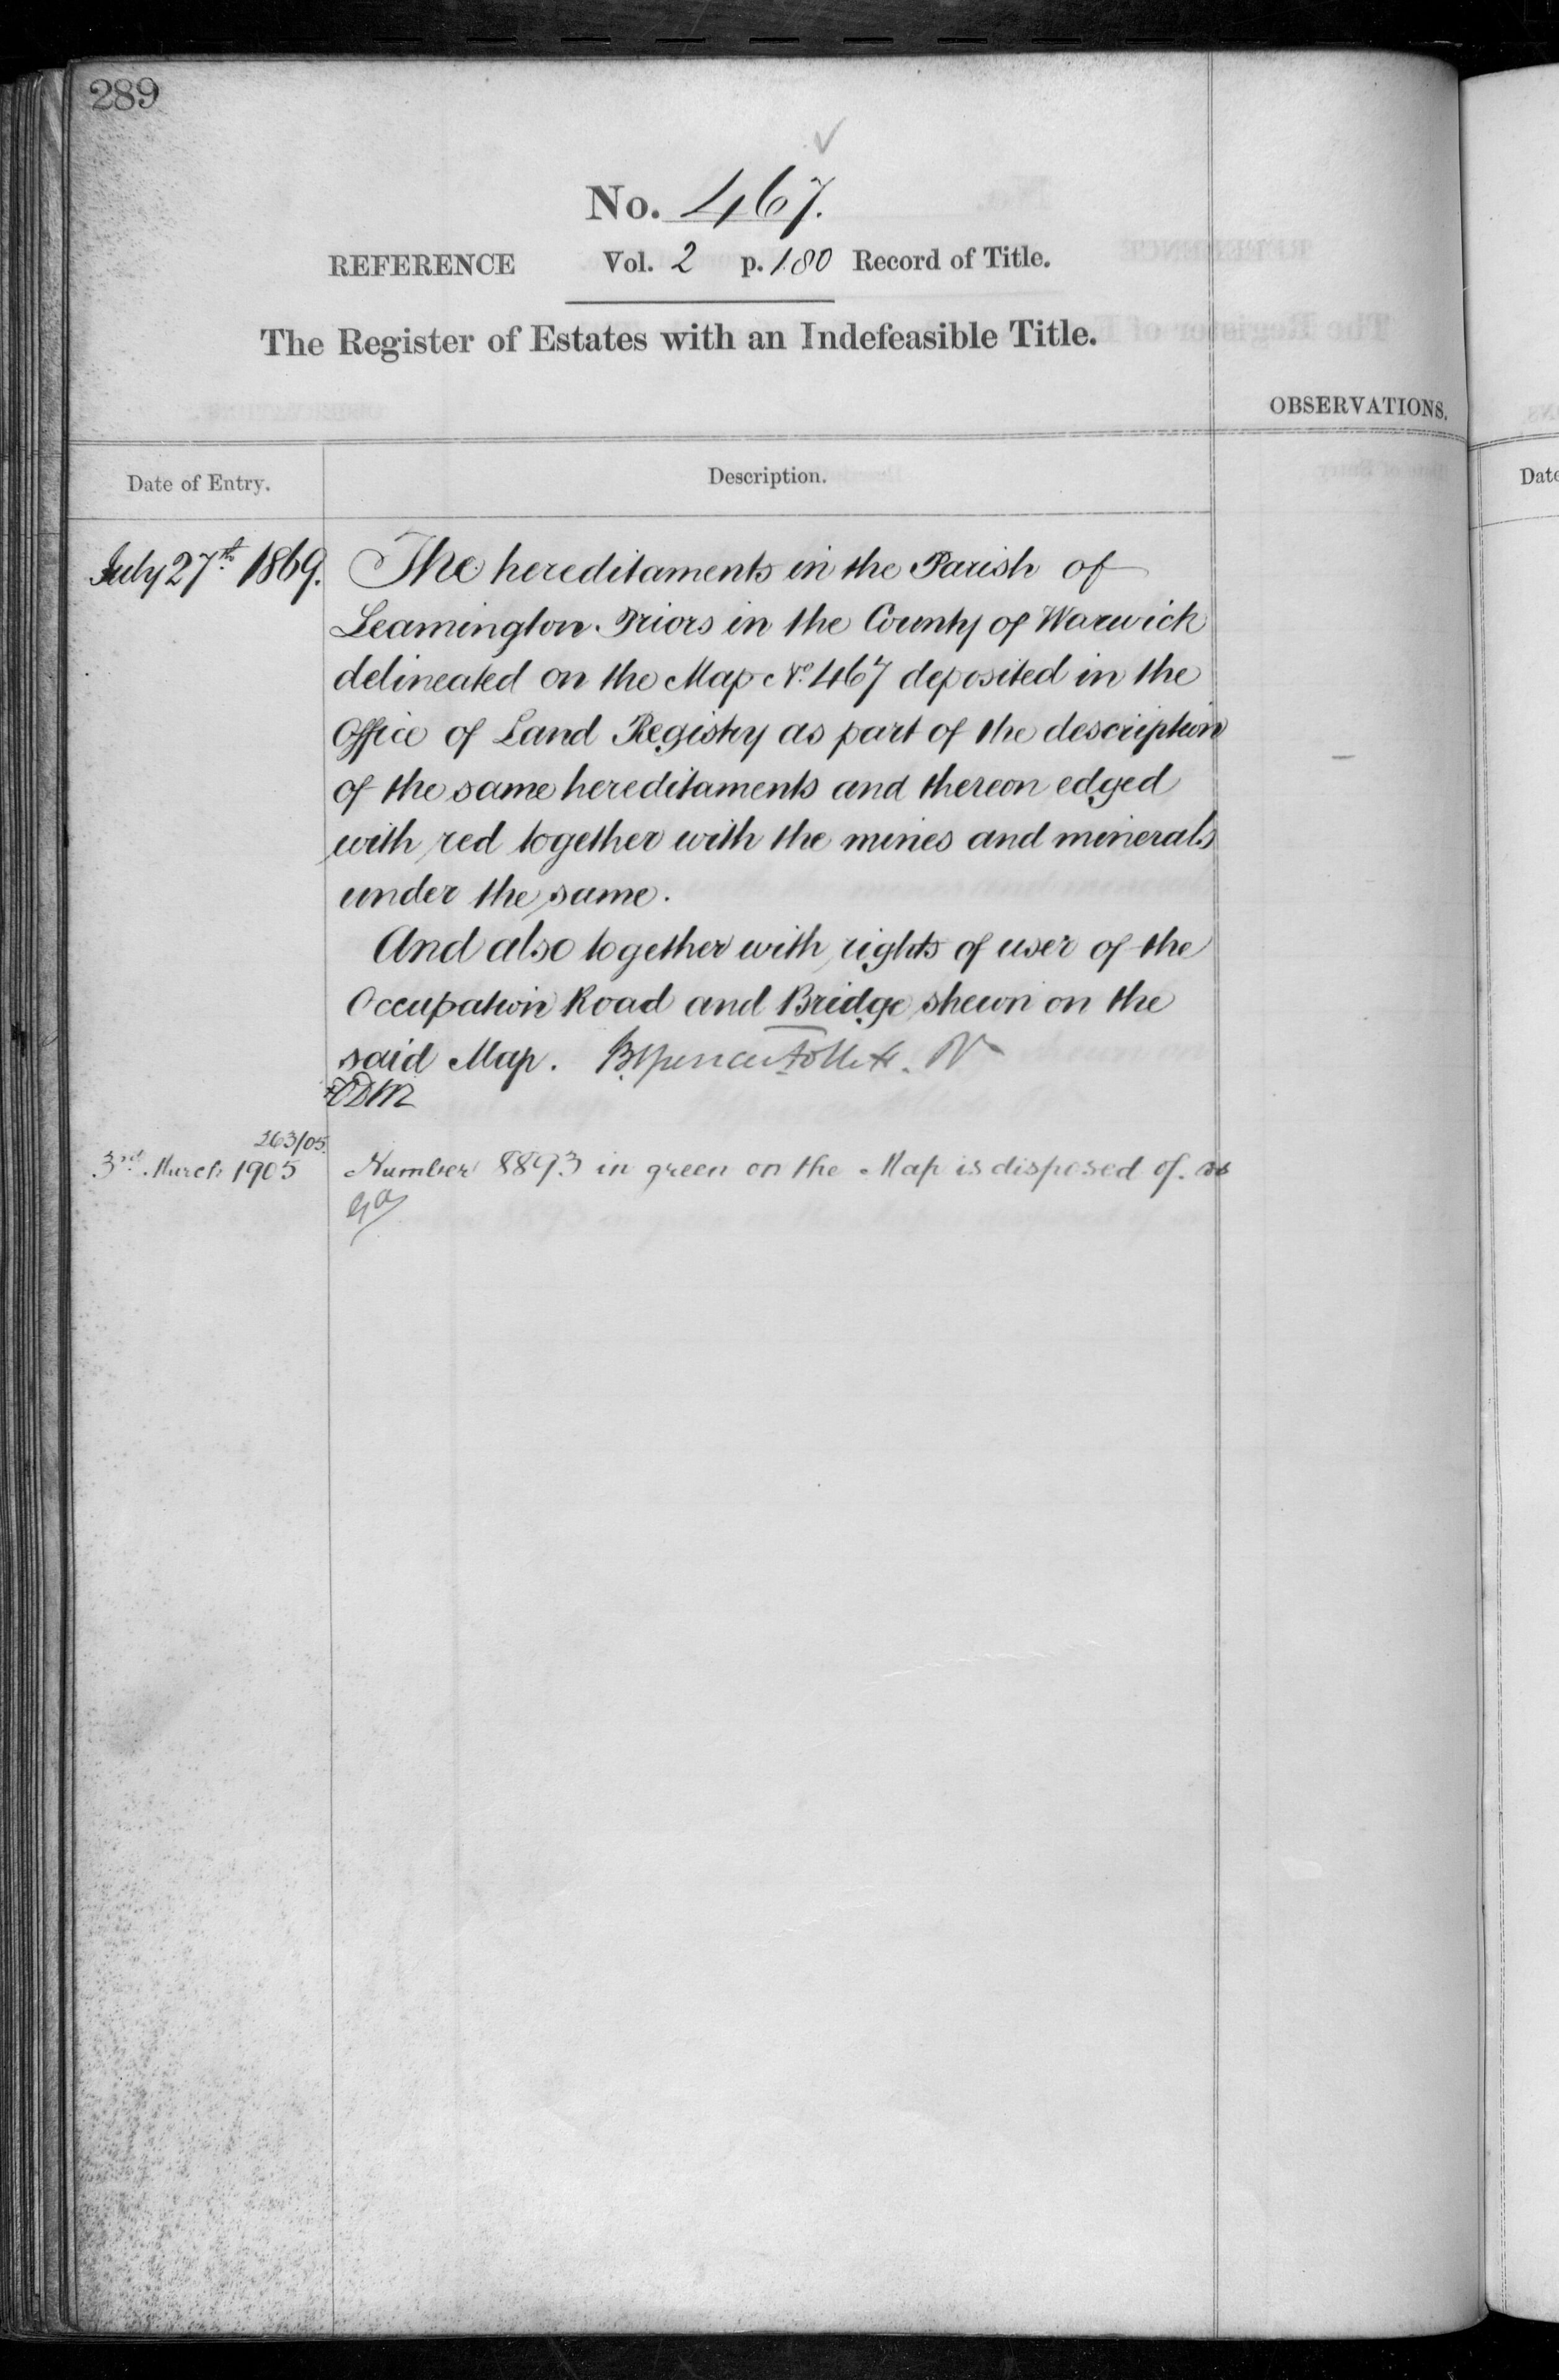 289
No. 467.
REFERENCE Vol. 2 p. 180 Record of Title.
The Register of Estates with an Indefeasible Title.
OBSERVATIONS.
Date of Entry. Description. Date
July 27th 1869. The hereditaments in the Parish of
Leamington Priors in the County of Warwick
delineated on the Map No. 467 deposited in the
Office of Land Registry as part of the description
of the same hereditaments and thereon edged
with red together with the mines and minerals
under the same.
And also together with rights of user of the
Occupation Road and Bridge shewn on the
said Map. B. Spencer Follett.
263/05.
3rd March 1905 Number 8893 in green on the Map is disposed of.